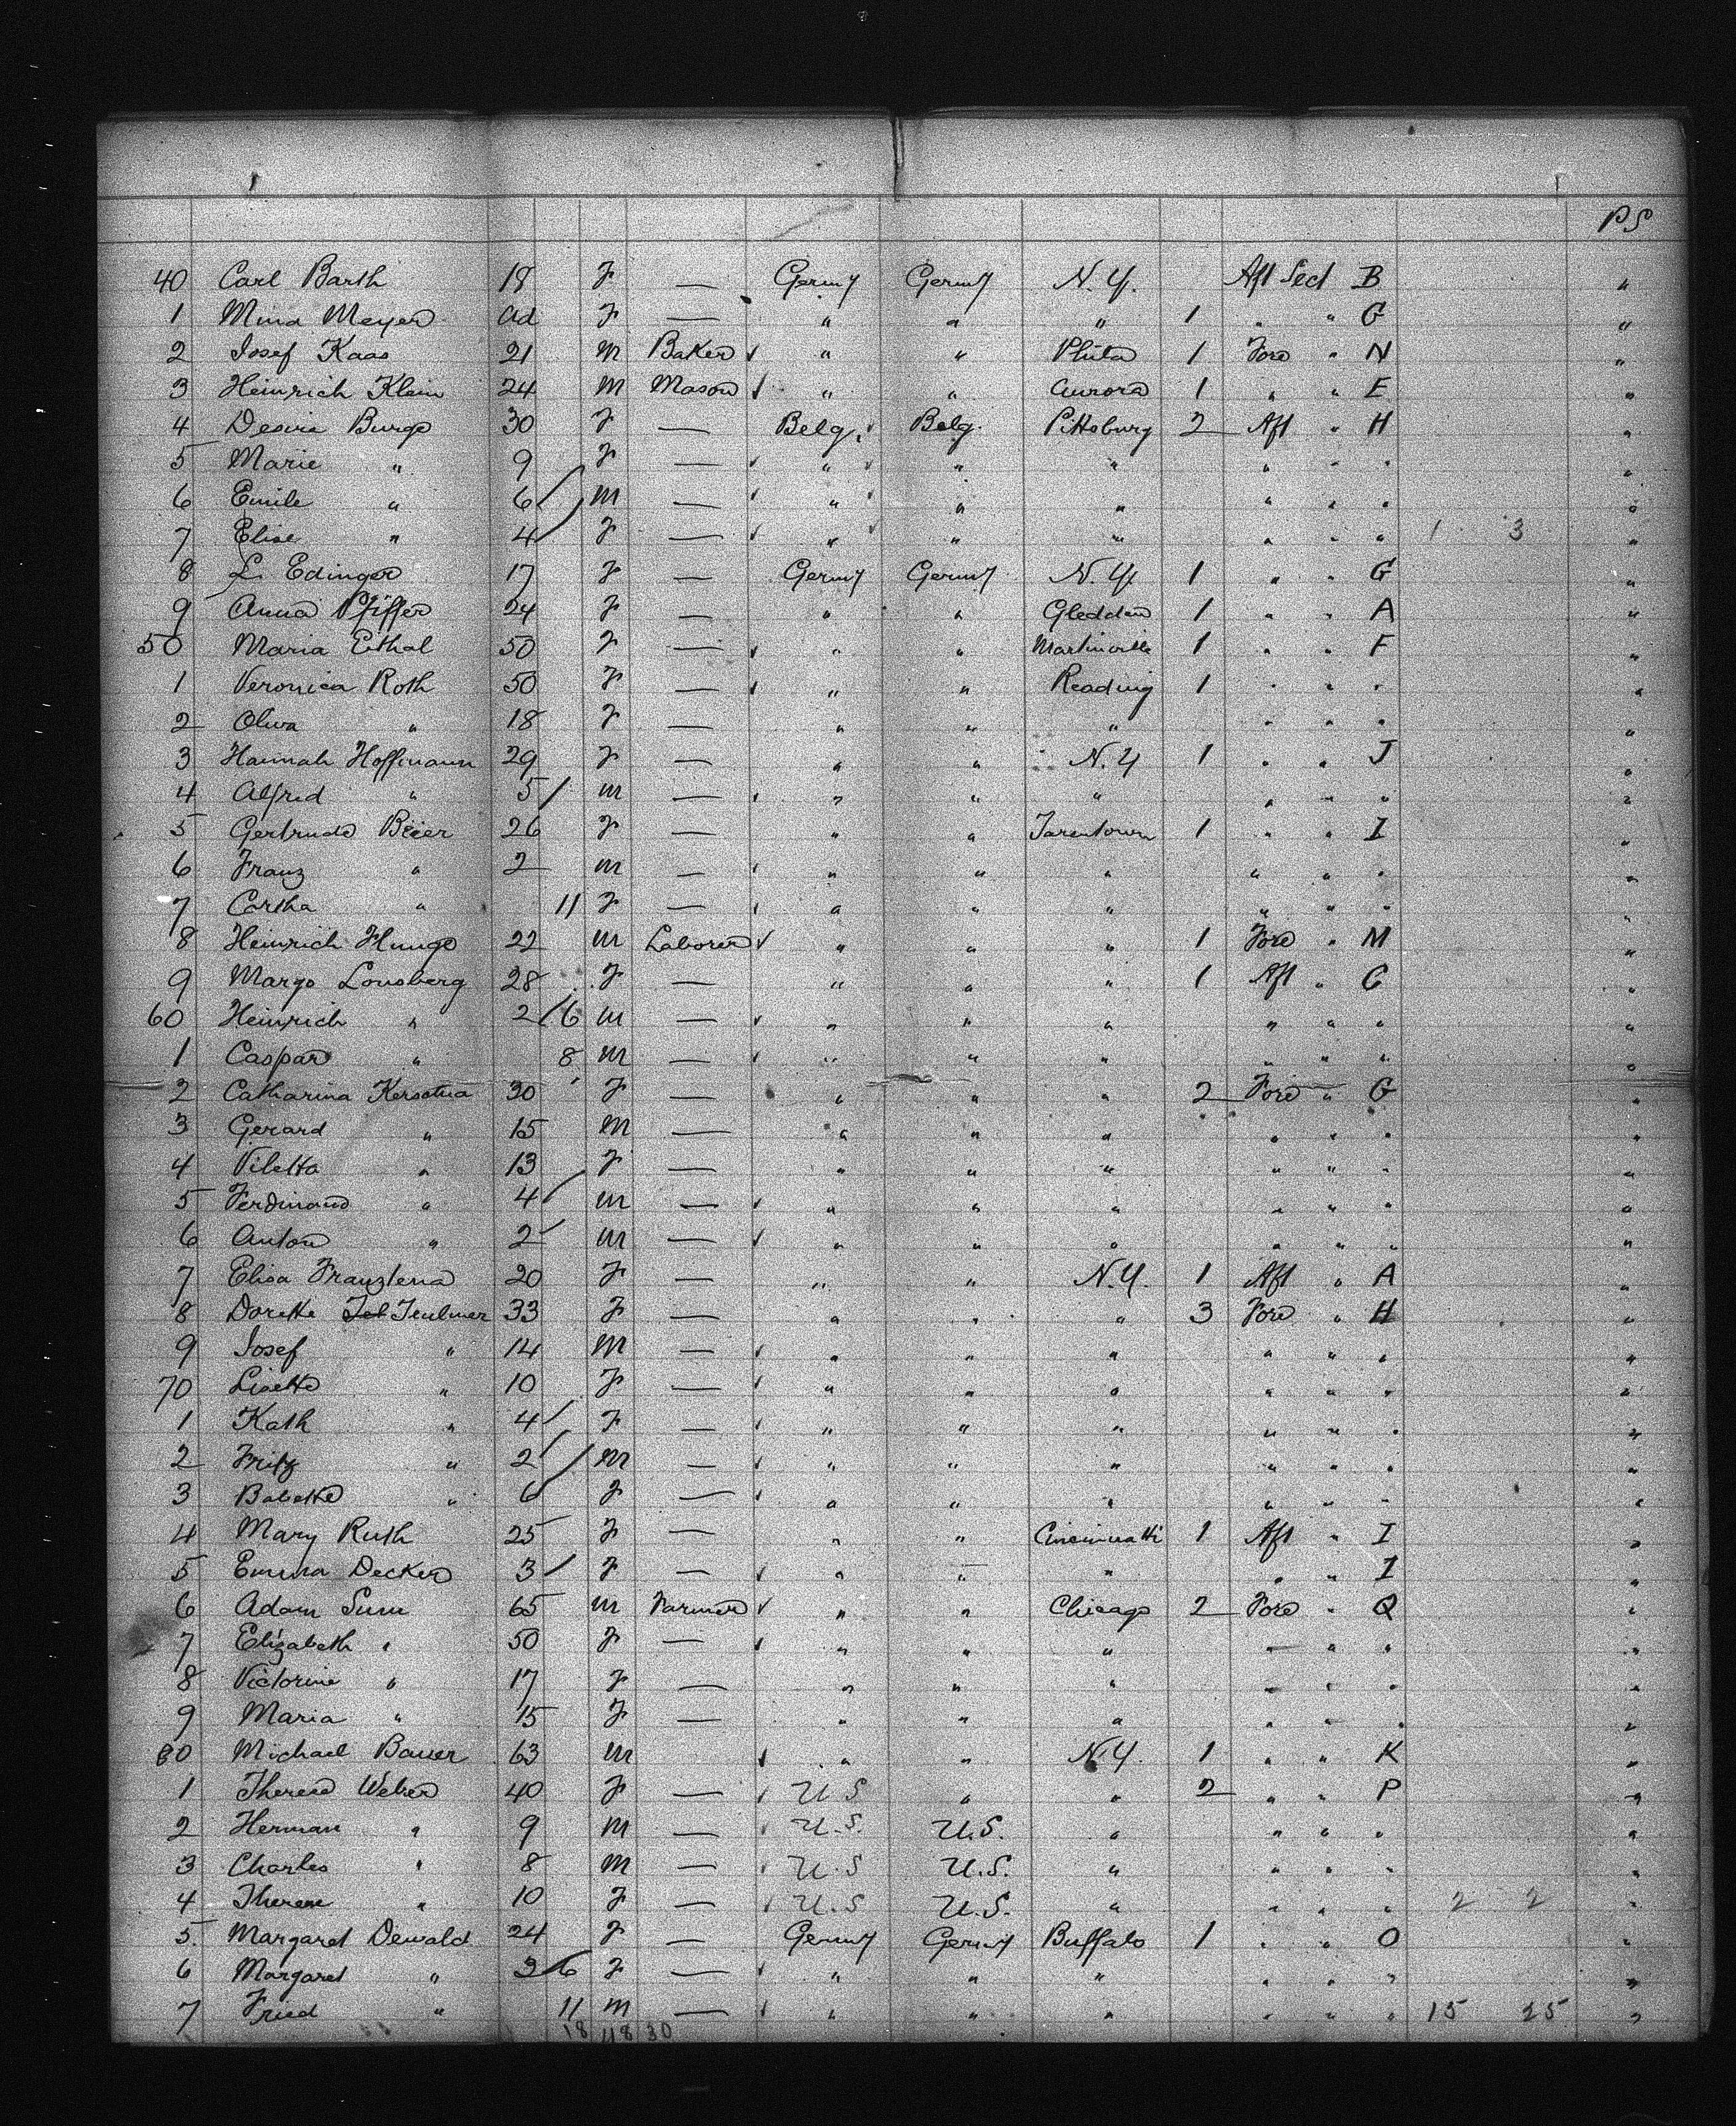 PS
40 Carl Barth 18 F — Germy Germy N.Y. Aft Sect B "
1 Mina Meyer ad F — " " " 1 " " G "
2 Josef Kaas 21 M Baker ✓ " " Phila 1 Fore " N "
3 Heinrich Klein 24 M Mason ✓ " " Aurora 1 " " E "
4 Desire Burgo 30 F — Belg. Belg. Pittsburg 2 Aft " H "
5 Marie " 9 F — " " " " " " "
6 Emile " 6 M — " " " " " " "
7 Elise " 4 F — " " " " " " 1 3 "
8 L. Edinger 17 F — Germy Germy N.Y. 1 " " G "
9 Anna Pfiffer 24 F — " " Gledden 1 " " A "
50 Maria Eithal 50 F — " " Martinville 1 " " F "
1 Veronica Roth 50 F — " " Reading 1 " " " "
2 Oliva " 18 F — " " " " " " "
3 Hannah Hoffmann 29 F — " " N.Y 1 " " J "
4 Alfred " 5 M — " " " " " " "
5 Gertrude Bier 26 F — " " Tarentown 1 " " I "
6 Franz " 2 M — " " " " " " "
7 " 11 F — " " " " " " "
8 Heinrich Hungo 22 M Laborer ✓ " " " 1 Fore " M "
9 Margo Lonsberg 28 F — " " " 1 Aft " C "
60 Heinrich " 2/6 M — " " " " " " "
1 Caspar " 8 M — " " " " " " "
2 Catharina 30 F — " " " 2 Fore " G "
3 Gerard " 15 M — " " " " " " "
4 Viletta " 13 F — " " " " " " "
5 Ferdinand " 4 M — " " " " " " "
6 Anton " 2 M — " " " " " " "
7 Elisa 20 F — " " N.Y. 1 Aft " A "
8 Dorette 33 F — " " " 3 Fore " H "
9 Josef " 14 M — " " " " " " "
70 Lisette " 10 F — " " " " " " "
1 Kath " 4 F — " " " " " " "
2 Fritz " 2 M — " " " " " " "
3 Babette " 6 F — " " " " " " "
4 Mary Ruth 25 F — " " Cincinnatti 1 Aft " I "
5 Emma Decker 3 F — " " " " " I "
6 Adam 65 M Farmer ✓ " " Chicago 2 Fore " Q "
7 Elizabeth " 50 F — " " " " " " "
8 Victorine " 17 F — " " " " " " "
9 Maria " 15 F — " " " " " " "
80 Michael Bauer 63 M " " N.Y. 1 " " K "
1 Therese Weber 40 F — U S " " 2 " " P "
2 Herman " 9 M — U.S. U.S. " " " " "
3 Charles " 8 M — U.S U.S. " " " " "
4 Therese " 10 F — U.S U.S. " " " " 2 2 "
5 Margaret Dewald 24 F — Germy Germy Buffalo 1 " " O "
6 Margaret " 2/6 F — " " " " " " "
7 Fried " 11 M — " " " " " " 15 25 "
18 48 30